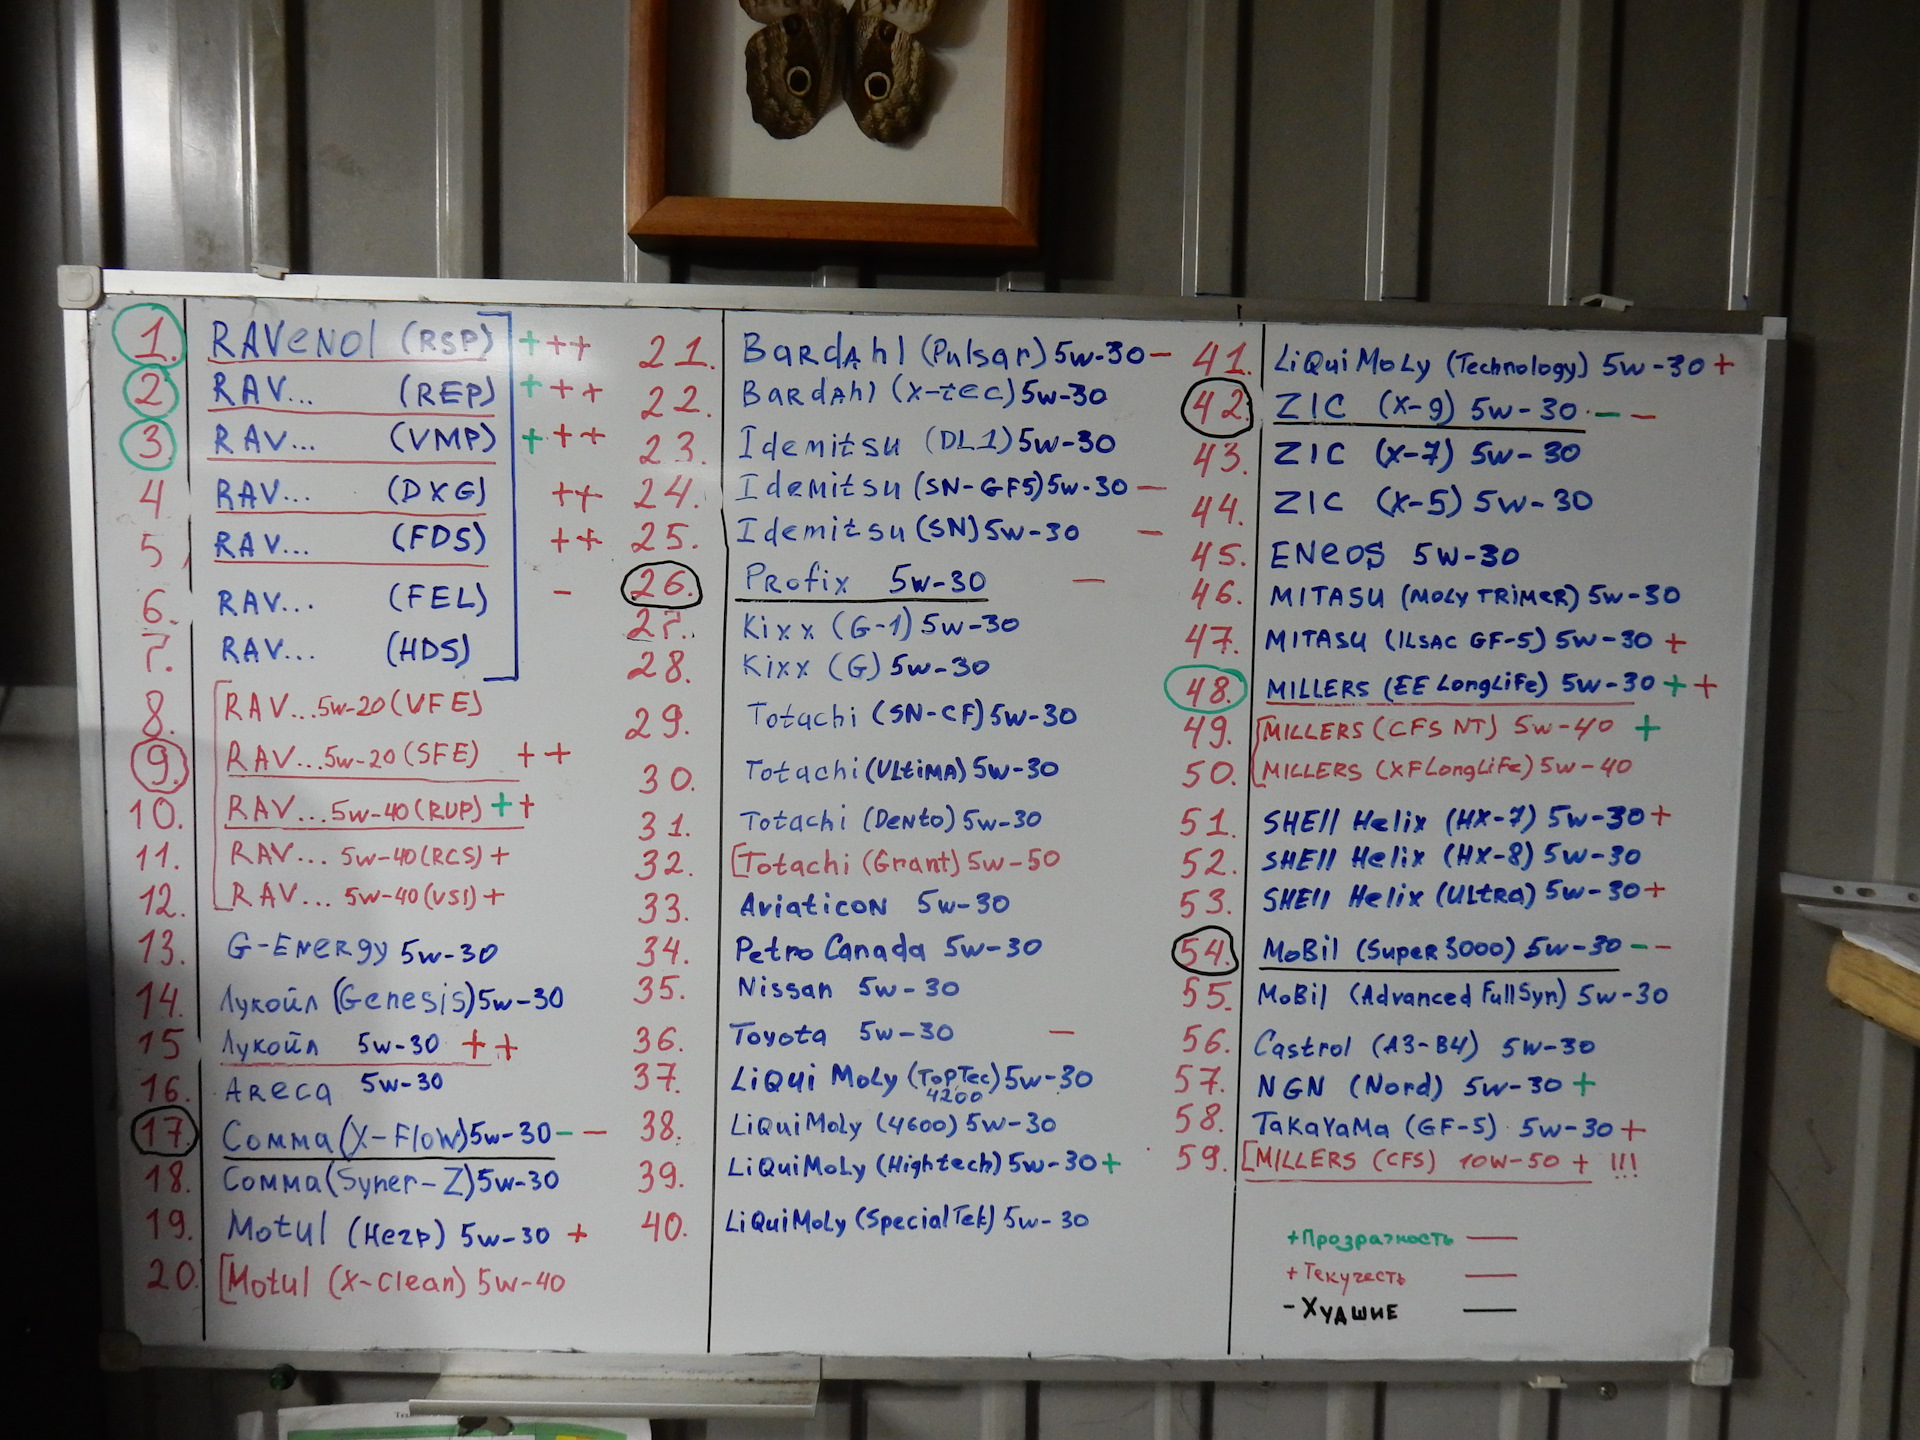 1. RAVENOL (RSP) +++
2 RAV... (REP) +++
3. RAV... (VMP) +++
4 RAV... (DXG) ++
5 RAV... (FDS) ++
6. RAV... (FEL) -
7. RAV... (HDS)
8. RAV...5w-20(VFE)
9. RAV...5w-20(SFE) ++
10. RAV...5w-40(RUP) ++
11. RAV... 5w-40(RCS) +
12. RAV... 5w-40(VSI) +
13. G-ENERgy 5w-30
14. Лукойл (Genesis) 5w-30
15 Лукойл 5w-30 ++
16. ARECA 5w-30
17. Comma (X-Flow) 5w-30 - -
18. Comma (Syner-Z) 5w-30
19. Motul (Негр) 5w-30 +
20. [Motul (X-clean) 5w-40
21. BARDAhl (Pulsar) 5w-30 -
22. BARDAhl (X-tec) 5w-30
23. Idemitsu (DL1) 5w-30
24. Idemitsu (SN-GF5) 5w-30 -
25. Idemitsu (SN) 5w-30 -
26. PRofix 5w-30 -
27. Kixx (G-1) 5w-30
28. Kixx (G) 5w-30
29. Totachi (SN-CF) 5w-30
30. Totachi (ULtiMA) 5w-30
31. Totachi (DeNto) 5w-30
32. [Totachi (Grant) 5w-50
33. AviaticoN 5w-30
34. Petro Canada 5w-30
35. Nissan 5w-30
36. Toyota 5w-30 -
37. LiQui MoLy (TopTec 4200) 5w-30
38. LiQuiMoLy (4600) 5w-30
39. LiQuiMoLy (Hightech) 5w-30 +
40. LiQuiMoLy (SpecialTek) 5w-30
41. LiQuiMoLy (Technology) 5w-30 +
42. ZIC (X-9) 5w-30 - -
43. ZIC (X-7) 5w-30
44. ZIC (X-5) 5w-30
45. ENeoS 5w-30
46. MITASU (MOLY TRIMER) 5w-30
47. MITASU (ILSAC GF-5) 5w-30 +
48. MILLERS (EE LongLife) 5w-30 ++
49. [MILLERS (CFS NT) 5w-40 +
50. [MILLERS (XFLongLife) 5w-40
51. SHEll Helix (HX-7) 5w-30 +
52. SHEll Helix (HX-8) 5w-30
53. SHEll Helix (ULtRa) 5w-30 +
54. MoBil (Super 3000) 5w-30 - -
55. MoBil (Advanced FullSyn) 5w-30
56. Castrol (A3-B4) 5w-30
57. NGN (Nord) 5w-30 +
58. TaKaYaMa (GF-5) 5w-30 +
59. [MILLERS (CFS) 10w-50 + !!!
+Прозрачность —
+Текучесть —
- Худшие —